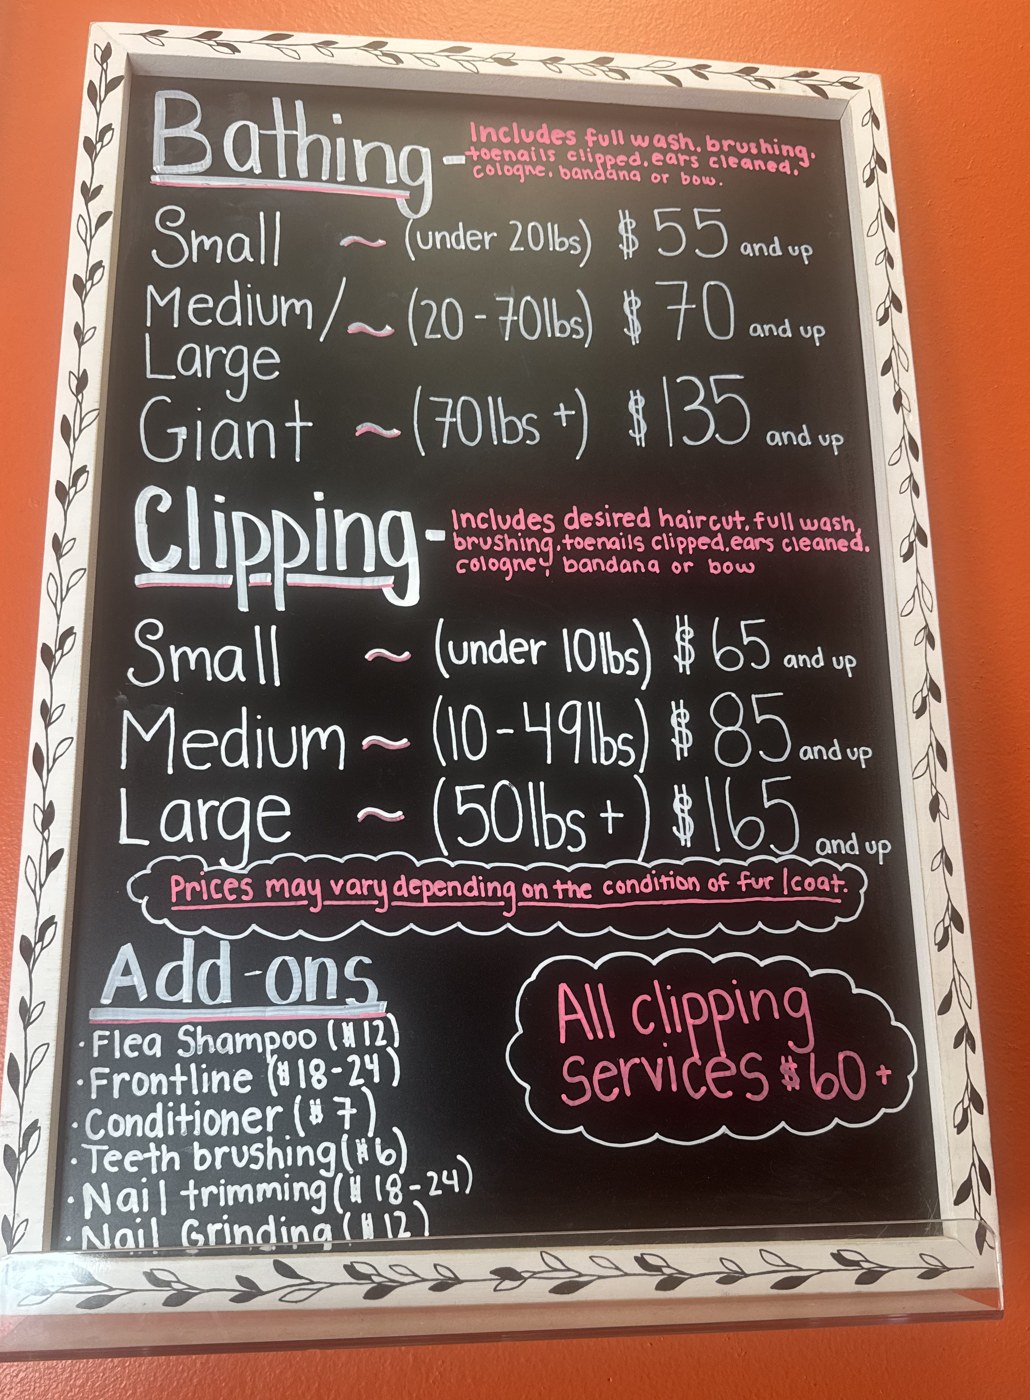 Bathing - Includes full wash, brushing,
toenails clipped, ears cleaned,
cologne, bandana or bow.
Small ~ (under 20lbs) $55 and up
Medium/ ~ (20-70lbs) $70 and up
Large
Giant ~ (70lbs+) $135 and up
Clipping - Includes desired haircut, full wash,
brushing, toenails clipped, ears cleaned,
cologne, bandana or bow
Small ~ (under 10lbs) $65 and up
Medium ~ (10-49lbs) $85 and up
Large ~ (50lbs+) $165 and up
Prices may vary depending on the condition of fur/coat.
Add-ons
·Flea Shampoo ($12)
·Frontline ($18-24)
·Conditioner ($7)
·Teeth brushing ($6)
·Nail trimming ($18-24)
·Nail Grinding ($12)
All clipping
Services $60+